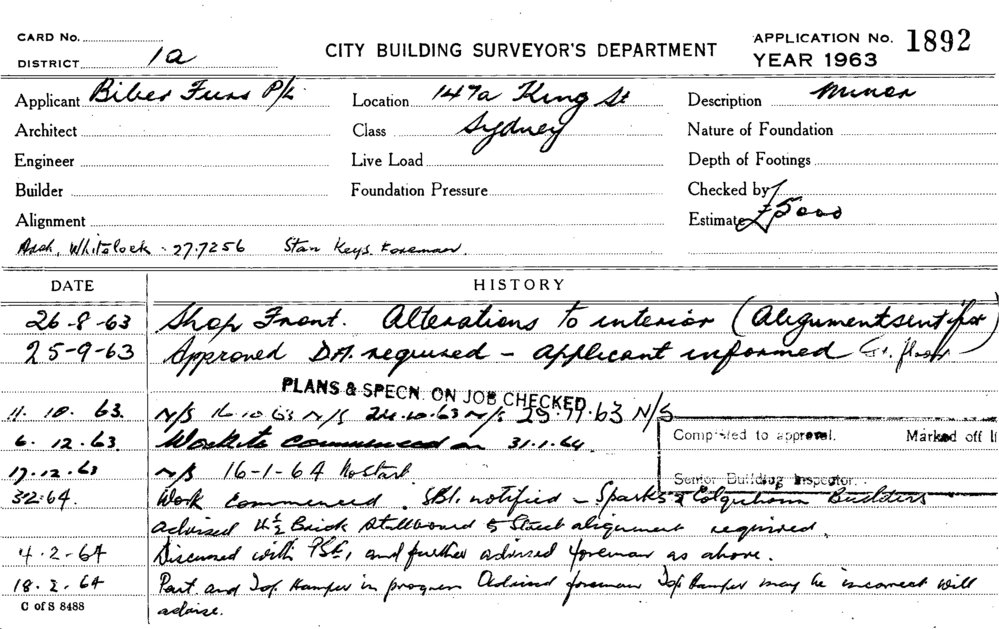 CARD No.
CITY BUILDING SURVEYOR'S DEPARTMENT
APPLICATION No. 1892
DISTRICT 1a
YEAR 1963
Applicant Biber Furs P/L
Location 147a King St
Description Minor
Architect
Class Sydney
Nature of Foundation
Engineer
Live Load
Depth of Footings
Builder
Foundation Pressure
Checked by
Alignment
Estimate £5000
Arch, Whitelock - 27.7256 Stan Keys. Foreman.
DATE HISTORY
26-8-63 Shop Front. Alterations to interior (Alignment sent for)
25-9-63 Approved D.A. required - applicant informed Gr. floor
PLANS & SPECN. ON JOB CHECKED
11. 10. 63. N/S 16.10.63 N/S 24.10.63 N/S 25.11.63 N/S
6. 12. 63. Work to commenced on 31.1.64
Completed to approval. Marked off
17.12.63 N/S 16-1-64 No start.
Senior Building Inspector.
3.2.64. Work commenced. SBI. notified - Sparks & Colquhoun Builders
advised 4½ Brick Stallboard to Street alignment required.
4-2-64 Discussed with and further advised foreman as above.
18.2.64 Part and Top Hamper in progress Advised foreman Top Hamper may be incorrect will
C of S 8488
advise.